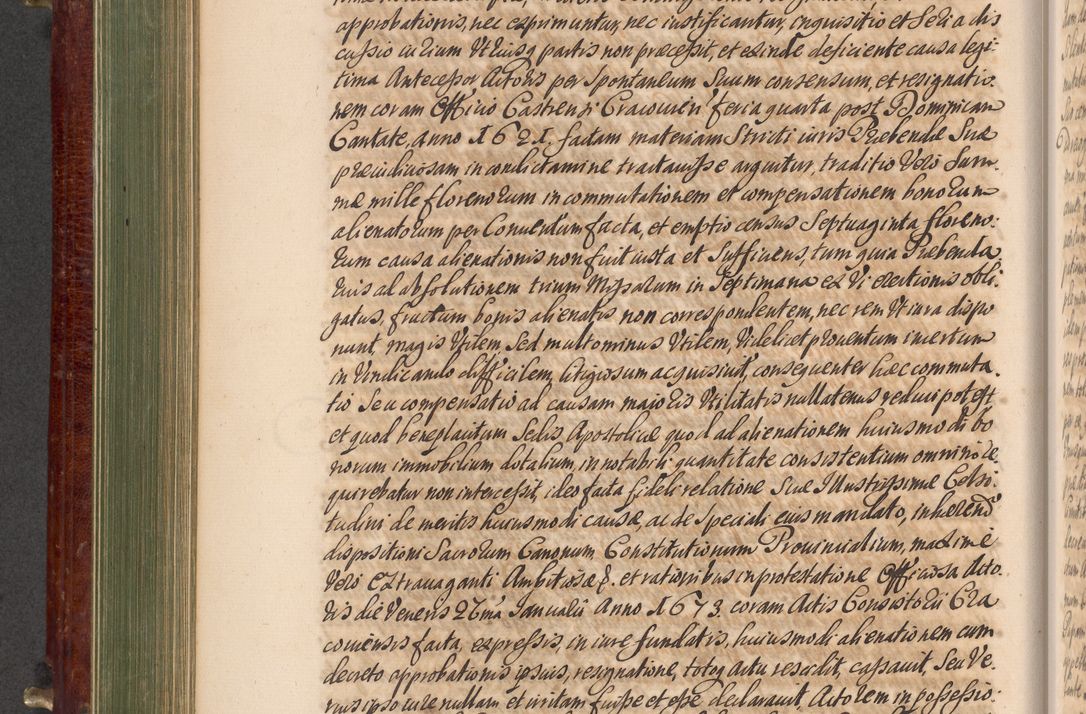 approbationis, nec exprimuntur, nec iustificantur, inquisitio et seria dis
cussio iurium Utriusq partis non præcessit, et exinde deficiente causa legi-
tima Antecessor Actoris per spontaneum suum consensum, et resignatio
nem coram Officio Castrensi Cracovien feria quarta post Dominicam
Cantate, anno 1621. factam materiam Stricti iuris Præbendæ Suæ
præiudiciosam incondictamine tractavisse arguitur, traditio Vero Sum
mæ mille florenorum in commutationem et compensationem bonorum
alienatorum per Conventum facta, et emptio census Septuaginta floreno:
rum causa alienationis non fuit iusta et Sufficiens, tum quia Præbenda
rius ad absolutionem trium Missarum in Septimana ex Vi erectionis obli
gatus, fructum bonis alienatis non correspondentem, nec rem Ut iura dispo
nunt, magis Utilem, Sed multo minus Utilem, Videlicet proventum incertum
in Vindicando difficilem, litigiosum acquisivit, consequenter hæc commuta
tio Seu compensatio ad causam maioris Utilitatis nullatenus reduci potest
et quod beneplacitum Sedis Apostolicæ quod ad alienationem huiusmodi bo
norum immobilium dotalium, in notabili quantitate consistentium omnino re
quirebatur non intercessit, ideo facta fideli relatione Suæ Illustrissimæ Celsi:
tudini de meritis huiusmodi causæ, ac de Speciali eius mandato, inhærend
dispositioni Sacrorum Canonum Constitutionum Provincialium, maxime
Vero Extravaganti Ambitiosæ &. et rationibus in protestatione Officiosa Acto
ris die Veneris 27ma Ianuarii Anno 1673 coram Actis Consistorii Cra
coviensis facta, expressis, in iure fundatis, huiusmodi alienationem cum
decreto approbationis ipsius, resignatione, totoq actu rescidit, cassavit, Seu Ve.
rius ipso iure nullam et irritam fuisse et esse declaravit Actorem in possessio: